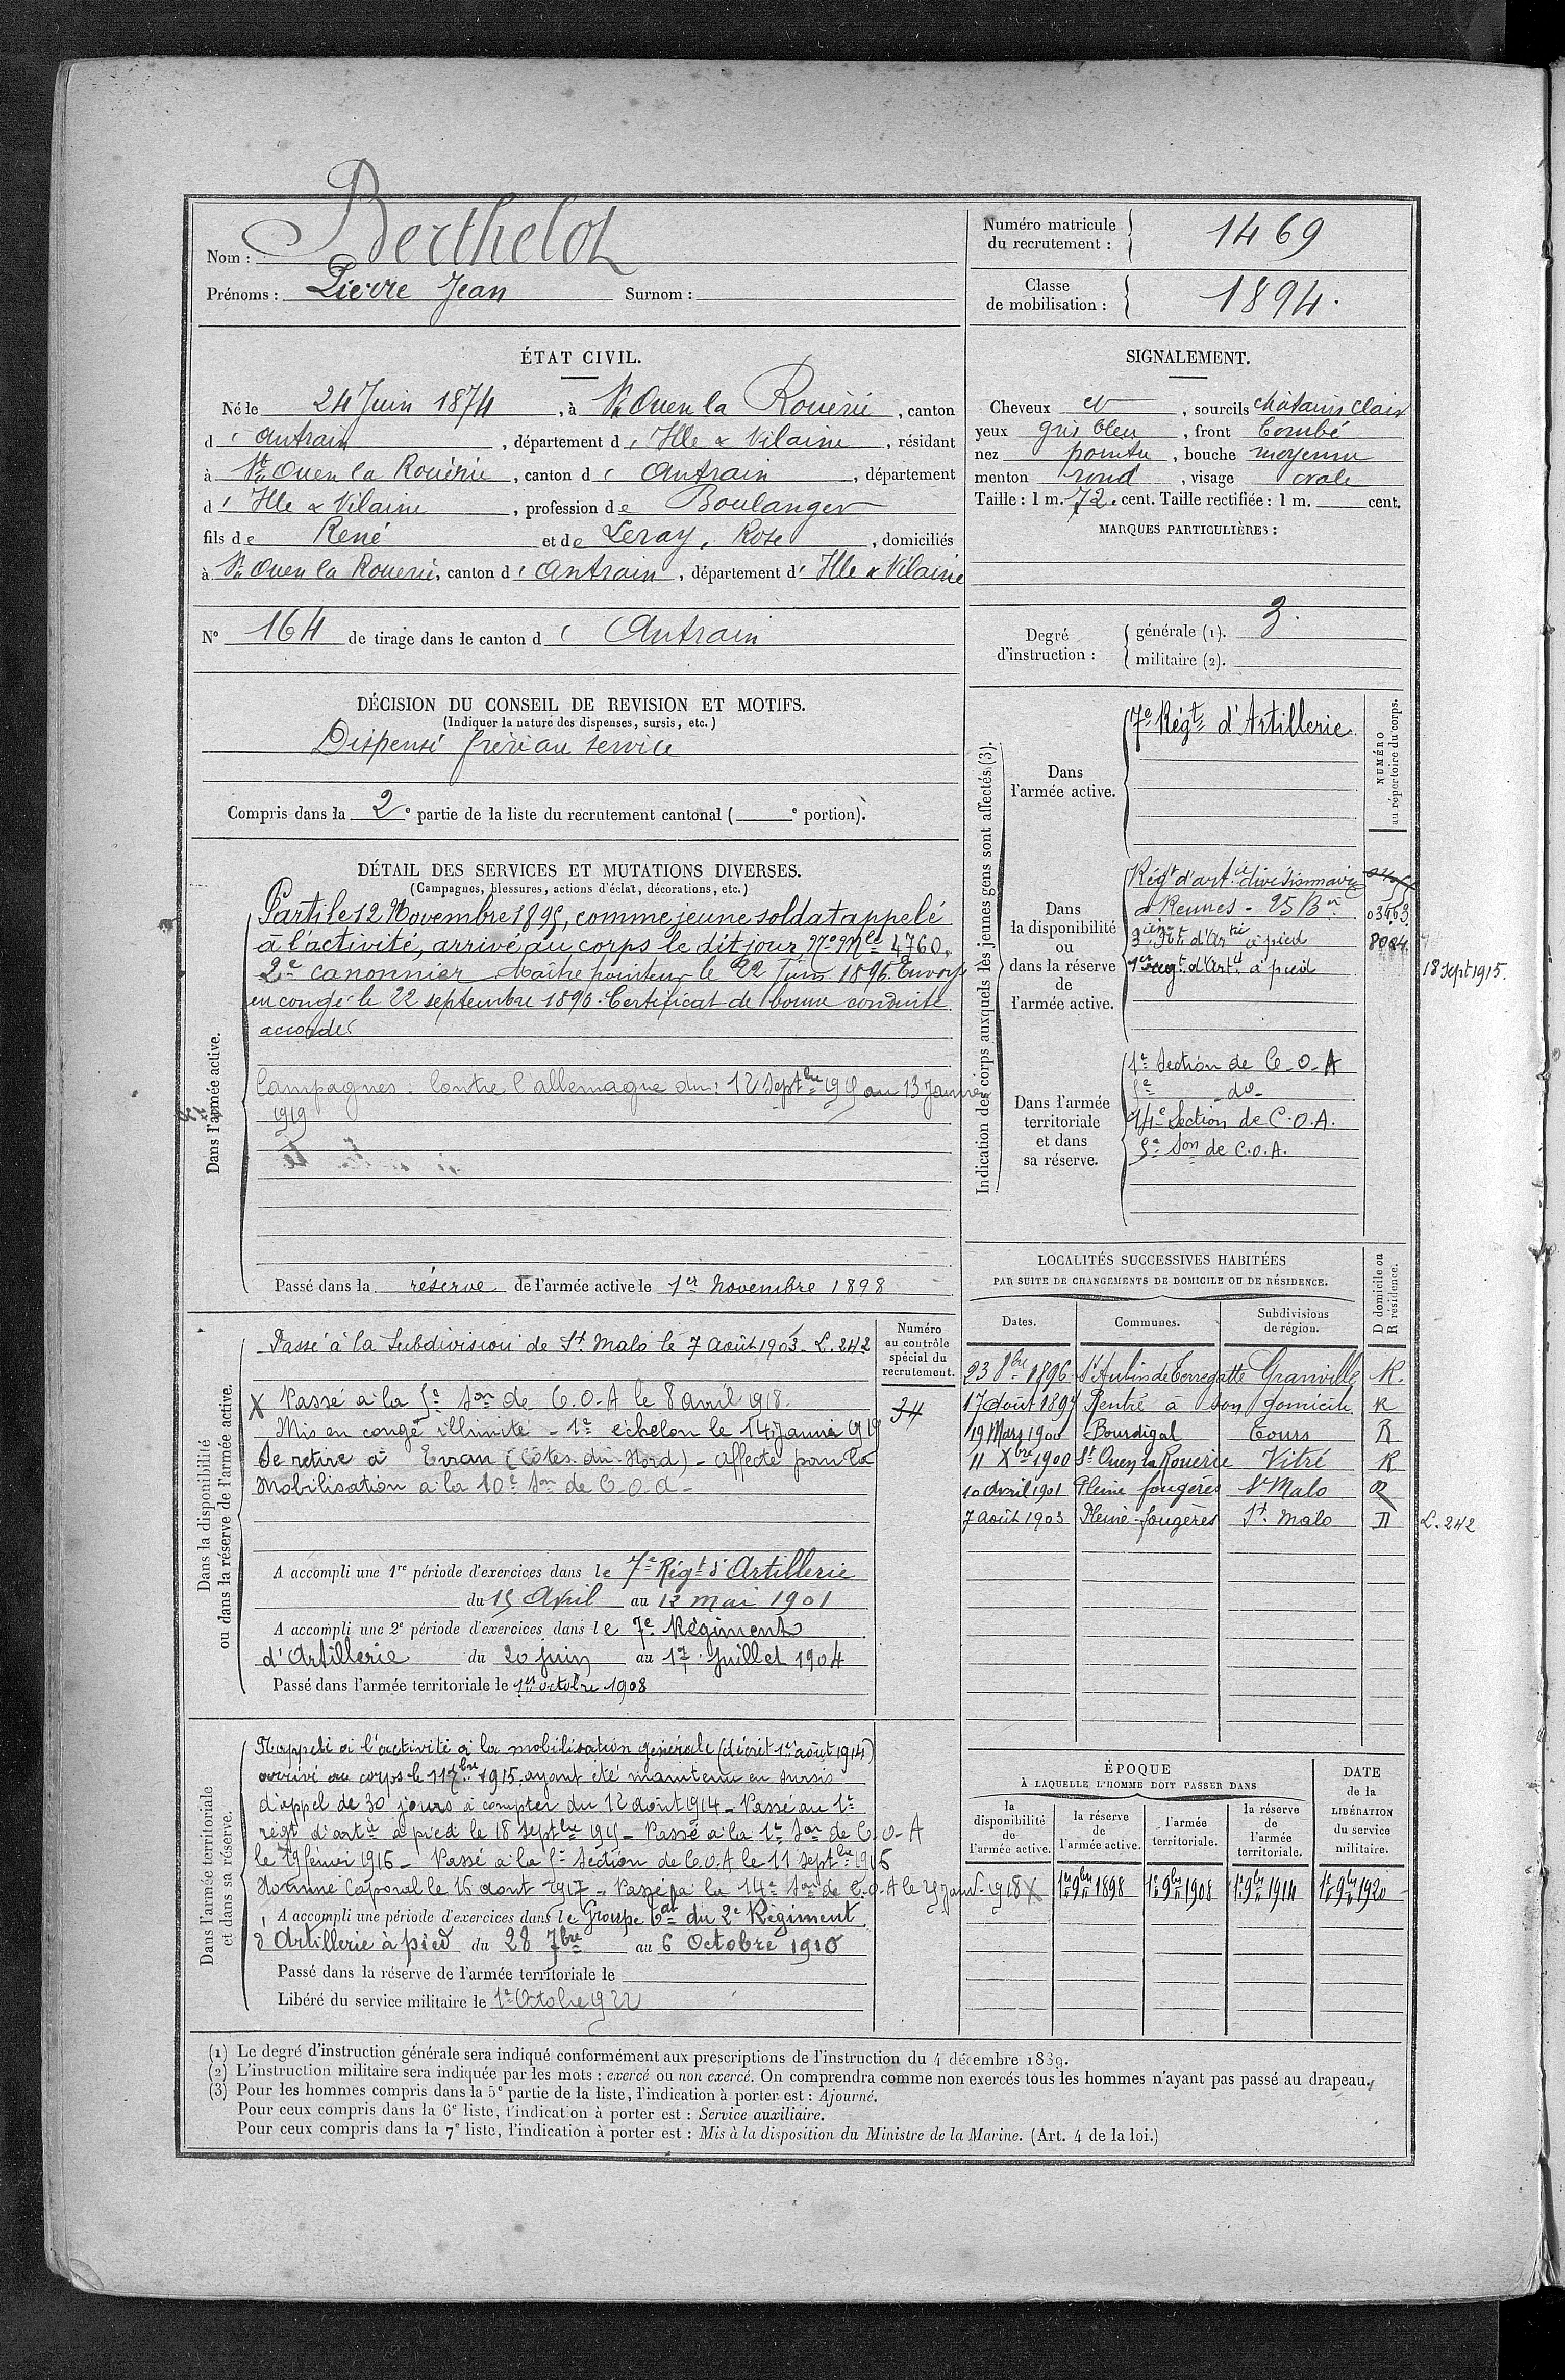 Nom : Berthelot
Prénoms : Pierre Jean Surnom :
Numéro matricule du recrutement : 1469
Classe de mobilisation : 1894.
ÉTAT CIVIL.
Né le 24 Juin 1874, à St Ouen la Rouërie, canton
d'Antrain, département d'Ille & Vilaine, résidant
à St Ouen la Rouërie, canton d'Antrain, département
d'Ille & Vilaine, profession de Boulanger
fils de René et de Leray, Rose, domiciliés
à St Ouen la Rouerie, canton d'Antrain, département d'Ille & Vilaine
N° 164 de tirage dans le canton d'Antrain
SIGNALEMENT.
Cheveux et, sourcils châtains clair
yeux gris bleu, front bombé
nez pointu, bouche moyenne
menton rond, visage ovale
Taille : 1 m. 72. cent. Taille rectifiée : 1 m. cent.
MARQUES PARTICULIÈRES :
Degré d'instruction :
générale (1). 3.
militaire (2).
DÉCISION DU CONSEIL DE REVISION ET MOTIFS.
(Indiquer la nature des dispenses, sursis, etc.)
Dispensé frère au service
Compris dans la 2e partie de la liste du recrutement cantonal ( e portion).
DÉTAIL DES SERVICES ET MUTATIONS DIVERSES.
(Campagnes, blessures, actions d'éclat, décorations, etc.)
Dans l'armée active.
Parti le 12 Novembre 1895, comme jeune soldat appelé
à l'activité, arrivé au corps le dit jour, No Mle 4760.
2e canonnier Maître pointeur le 22 Juin 1896. Envoyé
en congé le 22 septembre 1896. Certificat de bonne conduite
accordé
Campagnes : Contre l'allemagne du : 12 Septbre 1915 au 13 Janvier
1919
Passé dans la réserve de l'armée active le 1er Novembre 1898
Indication des corps auxquels les jeunes gens sont affectés (3).
NUMÉRO au répertoire du corps.
Dans l'armée active.
7e Régt d'Artillerie.
Dans la disponibilité ou dans la réserve de l'armée active.
Régt d'artie divisionnaire
à Rennes - 25 Bie
3e Rgt d'Artie à pied 8024.
1er regt d'Artie à pied 18 sept 1915.
Dans l'armée territoriale et dans sa réserve.
1e Section de C.O.A
5e - do -
14e Section de C.O.A.
5e Son de C.O.A.
LOCALITÉS SUCCESSIVES HABITÉES
PAR SUITE DE CHANGEMENTS DE DOMICILE OU DE RÉSIDENCE.
Dates. Communes. Subdivisions de région. D domicile ou R résidence.
23 8bre 1896 St Aubin de Terregatte Granville R.
17 Août 1897 Rentré à son domicile R
19 Mars 1900 Bourdigal Tours R
11 Xbre 1900 St Ouen la Rouerie Vitré R
10 Avril 1901 Pleine fougères St Malo R
7 Août 1903 Pleine-fougères St. Malo D L. 242
Dans la disponibilité ou dans la réserve de l'armée active.
Numéro au contrôle spécial du recrutement.
34
Passé à la Subdivision de St. Malo le 7 Août 1903. L. 242
X Passé à la 5e Son de C.O.A le 8 avril 1918.
Mis en congé illimité - 1e échelon le 14 Janvier 1919
Se retire à Evran (Côtes-du-Nord) - Affecté pour la
Mobilisation à la 10e Son de C.O.A -
A accompli une 1re période d'exercices dans le 7e Régt d'Artillerie
du 15 Avril au 12 mai 1901
A accompli une 2e période d'exercices dans le 7e Régiment
d'Artillerie du 20 juin au 17 Juillet 1904
Passé dans l'armée territoriale le 1er octobre 1908
Dans l'armée territoriale et dans sa réserve.
Rappelé à l'activité à la mobilisation générale (décret 1er août 1914)
arrivé au corps le 11 7bre 1915. ayant été maintenu en sursis
d'appel de 30 jours à compter du 12 août 1914 - Passé au 1er
régt d'artie à pied le 18 septbre 1915 - Passé à la 1e Son de C.O.A
le 29 février 1916 - Passé à la 5e Section de C.O.A le 11 septbre 1916
Nommé Caporal le 16 aout 1917 - Passé à la 14e Son de C.O.A le 25 Janv. 1918 X
A accompli une période d'exercices dans le Groupe Tal du 2e Régiment
d'Artillerie à pied du 28 7bre au 6 Octobre 1910
Passé dans la réserve de l'armée territoriale le
Libéré du service militaire le 1er Octobre 1922
ÉPOQUE
À LAQUELLE L'HOMME DOIT PASSER DANS
la disponibilité de l'armée active. la réserve de l'armée active. l'armée territoriale. la réserve de l'armée territoriale. DATE de la LIBÉRATION du service militaire.
1er 9bre 1898 1er 9bre 1908 1er 9bre 1914 1er 9bre 1920
(1) Le degré d'instruction générale sera indiqué conformément aux prescriptions de l'instruction du 4 décembre 1889.
(2) L'instruction militaire sera indiquée par les mots : exercé ou non exercé. On comprendra comme non exercés tous les hommes n'ayant pas passé au drapeau.
(3) Pour les hommes compris dans la 5e partie de la liste, l'indication à porter est : Ajourné.
Pour ceux compris dans la 6e liste, l'indication à porter est : Service auxiliaire.
Pour ceux compris dans la 7e liste, l'indication à porter est : Mis à la disposition du Ministre de la Marine. (Art. 4 de la loi.)